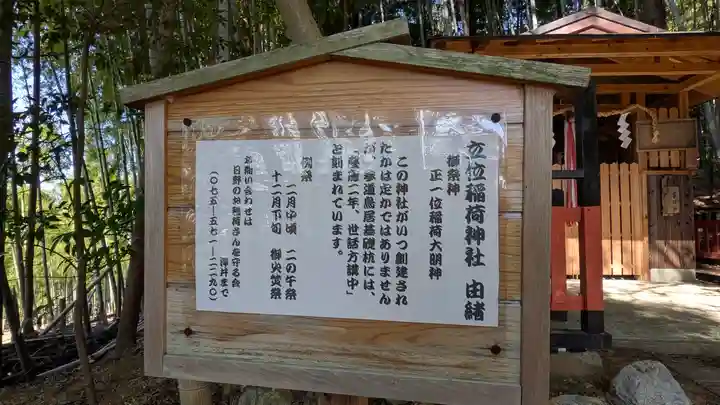 立位稲荷神社 由緒
御祭神
正一位稲荷大明神
この神社がいつ創建され
たかは定かではありません
が、参道鳥居基礎杭には、
「慶応二年、世話方講中」
と刻まれています。
例祭
二月中頃 二の午祭
十二月下旬 御火焚祭
お問い合わせは
日野のお稲荷さんを守る会
澤井まで
(〇七五―五七一―二二九〇)